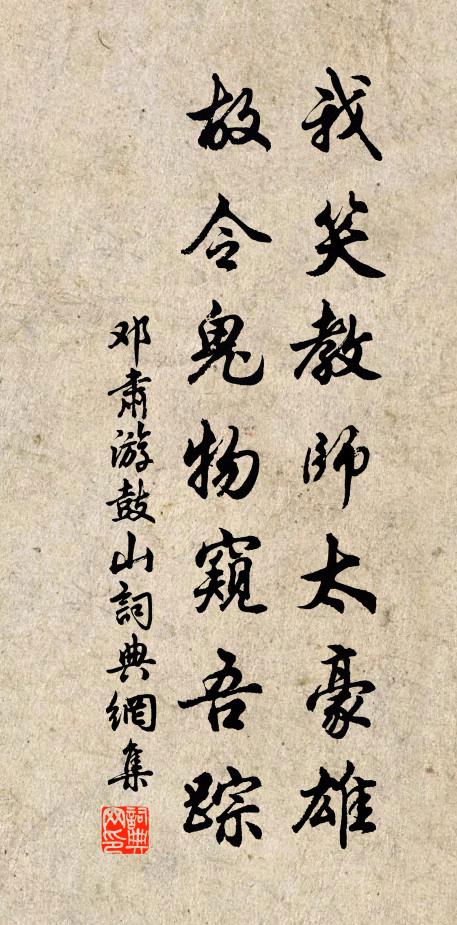 我笑教師太豪雄
故令鬼物窺吾踪
邓肅游鼓山詞典網集
詞典网印